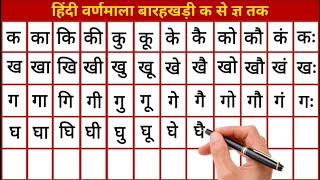 हिंदी वर्णमाला बारहखड़ी क से ज्ञ तक
क का कि की कु कू के कै को कौ कं कः
ख खा खि खी खु खू खे खै खो खौ खं खः
ग गा गि गी गु गू गे गै गो गौ गं गः
घ घा घि घी घु घू घे घै